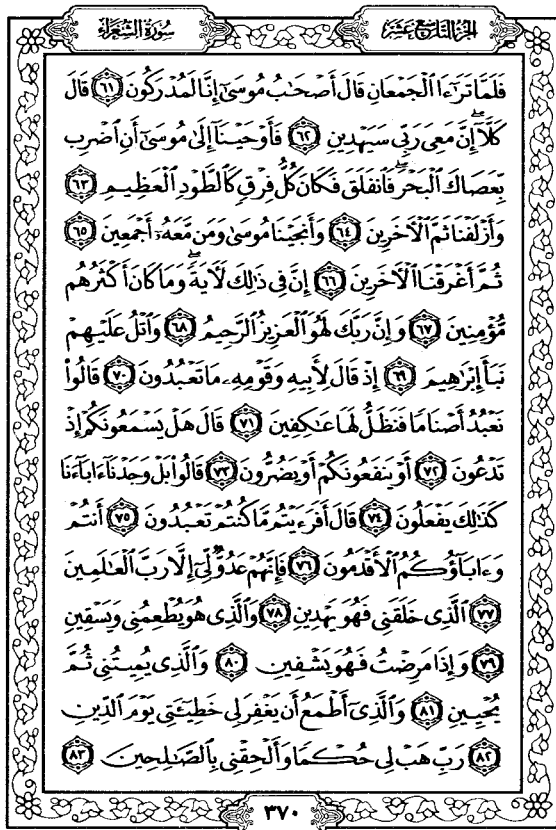 سُورَةُ الشُّعَرَاءِ
الجُزْءُ التَّاسِعَ عَشَرَ
فَلَمَّا تَرَٰٓءَا ٱلْجَمْعَانِ قَالَ أَصْحَٰبُ مُوسَىٰٓ إِنَّا لَمُدْرَكُونَ ٦١ قَالَ
كَلَّآ ۖ إِنَّ مَعِىَ رَبِّى سَيَهْدِينِ ٦٢ فَأَوْحَيْنَآ إِلَىٰ مُوسَىٰٓ أَنِ ٱضْرِب
بِّعَصَاكَ ٱلْبَحْرَ ۖ فَٱنفَلَقَ فَكَانَ كُلُّ فِرْقٍ كَٱلطَّوْدِ ٱلْعَظِيمِ ٦٣
وَأَزْلَفْنَا ثَمَّ ٱلْءَاخَرِينَ ٦٤ وَأَنجَيْنَا مُوسَىٰ وَمَن مَّعَهُۥٓ أَجْمَعِينَ ٦٥
ثُمَّ أَغْرَقْنَا ٱلْءَاخَرِينَ ٦٦ إِنَّ فِى ذَٰلِكَ لَءَايَةً ۖ وَمَا كَانَ أَكْثَرُهُم
مُّؤْمِنِينَ ٦٧ وَإِنَّ رَبَّكَ لَهُوَ ٱلْعَزِيزُ ٱلرَّحِيمُ ٦٨ وَٱتْلُ عَلَيْهِمْ
نَبَأَ إِبْرَٰهِيمَ ٦٩ إِذْ قَالَ لِأَبِيهِ وَقَوْمِهِۦ مَا تَعْبُدُونَ ٧٠ قَالُوا۟
نَعْبُدُ أَصْنَامًا فَنَظَلُّ لَهَا عَٰكِفِينَ ٧١ قَالَ هَلْ يَسْمَعُونَكُمْ إِذْ
تَدْعُونَ ٧٢ أَوْ يَنفَعُونَكُمْ أَوْ يَضُرُّونَ ٧٣ قَالُوا۟ بَلْ وَجَدْنَآ ءَابَآءَنَا
كَذَٰلِكَ يَفْعَلُونَ ٧٤ قَالَ أَفَرَءَيْتُم مَّا كُنتُمْ تَعْبُدُونَ ٧٥ أَنتُمْ
وَءَابَآؤُكُمُ ٱلْأَقْدَمُونَ ٧٦ فَإِنَّهُمْ عَدُوٌّ لِّىٓ إِلَّا رَبَّ ٱلْعَٰلَمِينَ
٧٧ ٱلَّذِى خَلَقَنِى فَهُوَ يَهْدِينِ ٧٨ وَٱلَّذِى هُوَ يُطْعِمُنِى وَيَسْقِينِ
٧٩ وَإِذَا مَرِضْتُ فَهُوَ يَشْفِينِ ٨٠ وَٱلَّذِى يُمِيتُنِى ثُمَّ
يُحْيِينِ ٨١ وَٱلَّذِىٓ أَطْمَعُ أَن يَغْفِرَ لِى خَطِيٓـَٔتِى يَوْمَ ٱلدِّينِ
٨٢ رَبِّ هَبْ لِى حُكْمًا وَأَلْحِقْنِى بِٱلصَّٰلِحِينَ ٨٣
٣٧٠